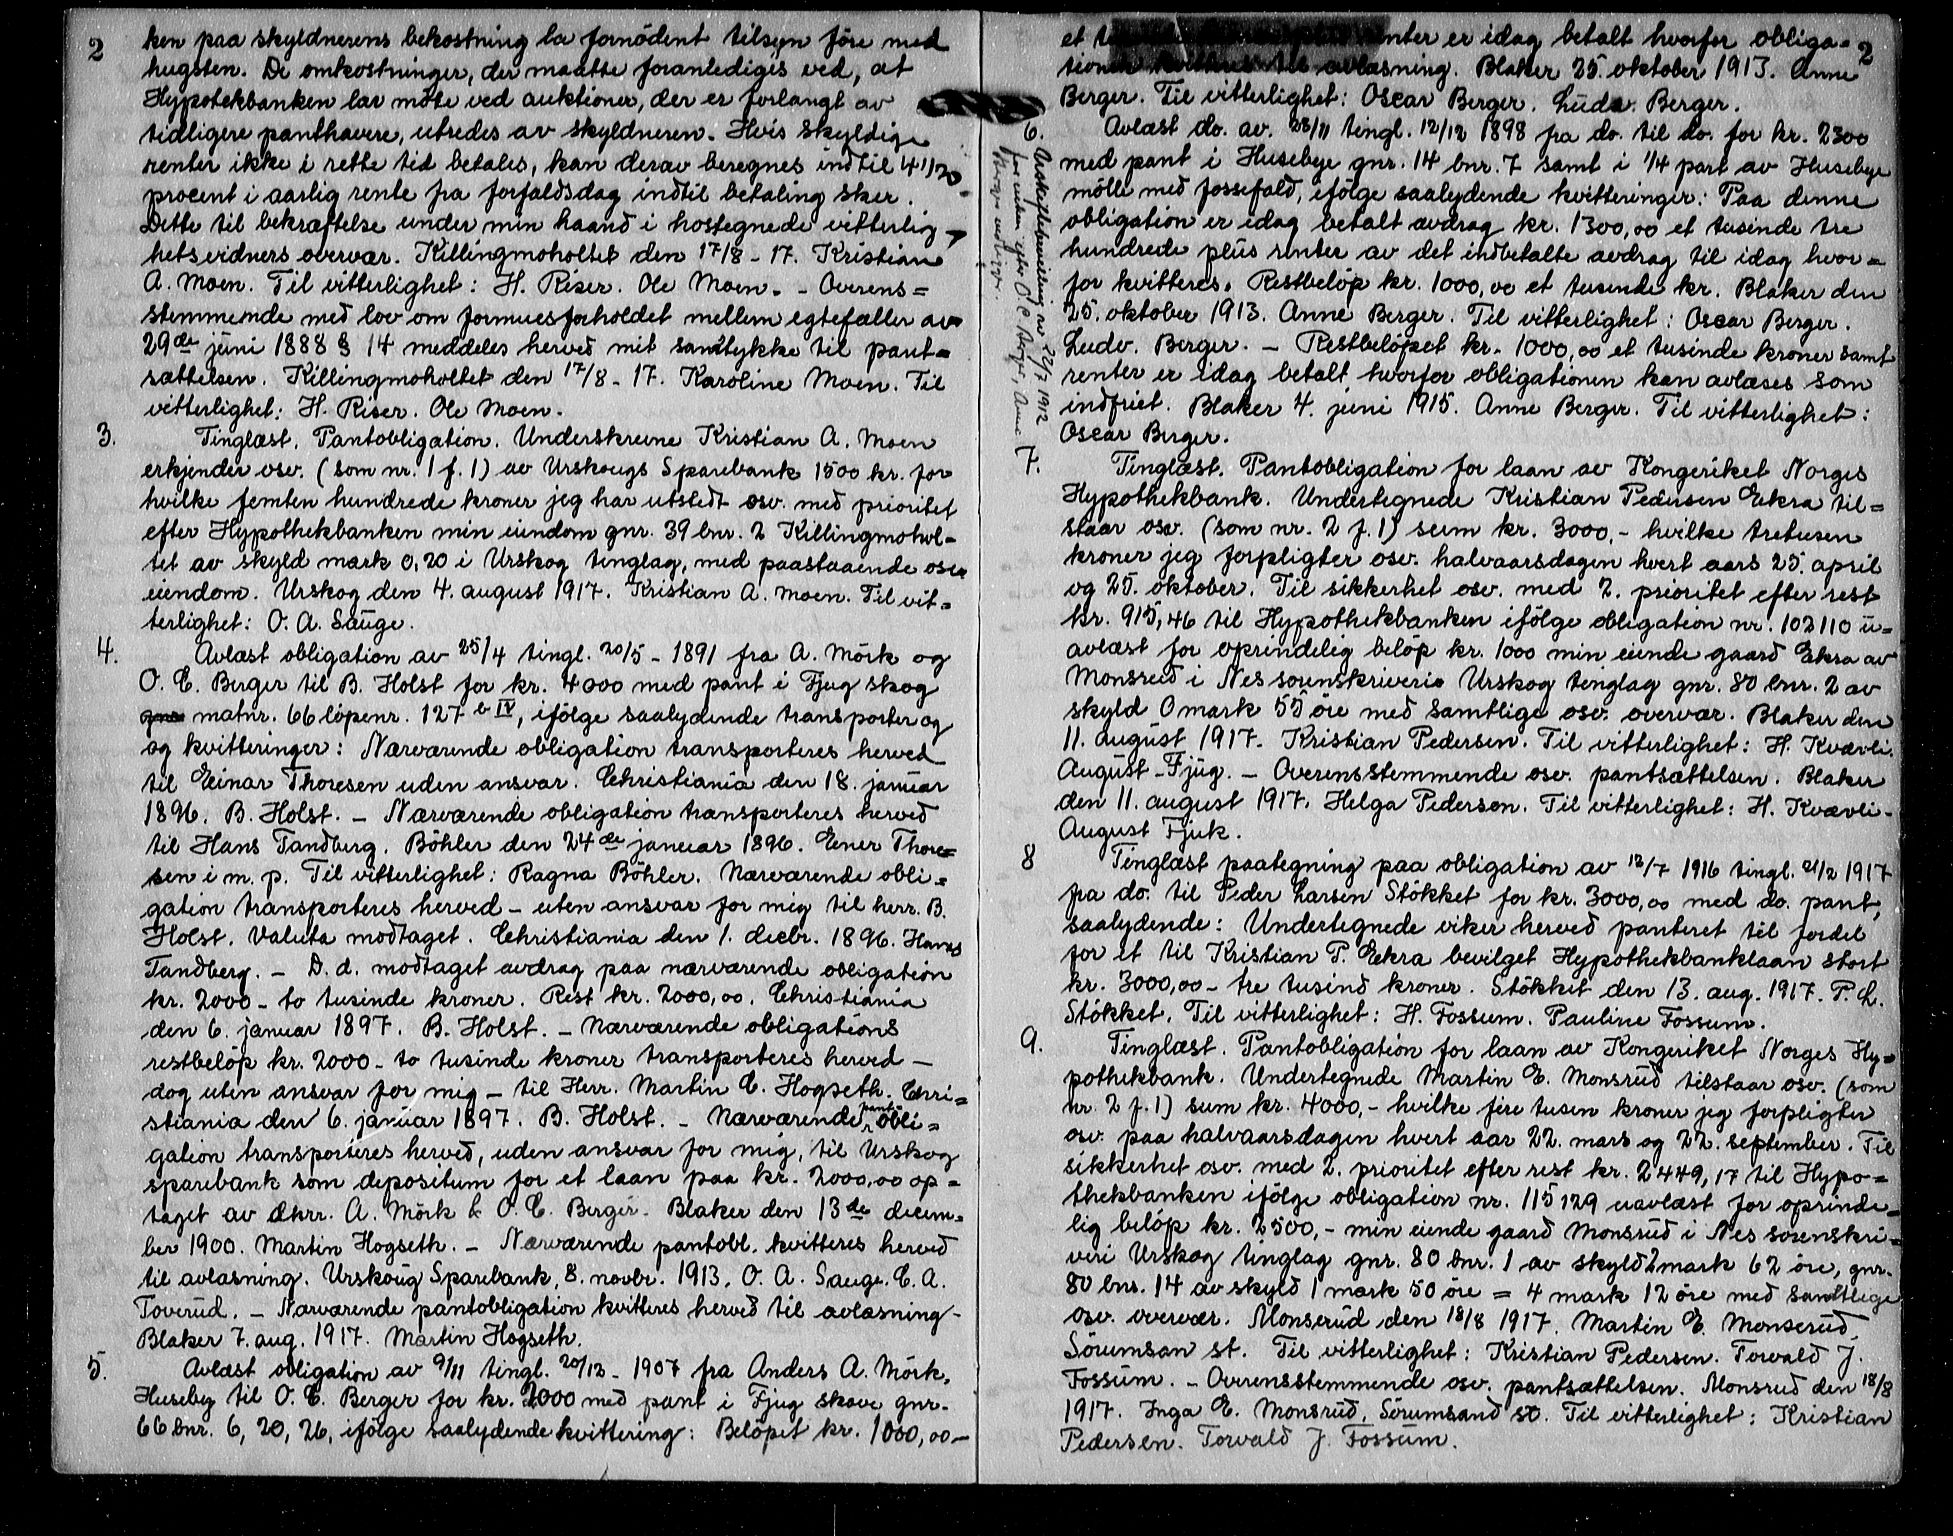 2
ken paa skyldnerens bekostning la fornödent tilsyn före med
hugsten. De omkostninger, der maatte foranlediges ved, at
Hypotekbanken lar möte ved auktioner, der er forlangt av
tidligere panthavere, utredes av skyldneren. Hvis skyldige
renter ikke i rette tid betales, kan derav beregnes indtil 4 1/20
procent i aarlig rente fra forfaldsdag indtil betaling sker.
Dette til bekræftelse under min haand i hostegnede vitterlig-
hetsvidners overvær. Killingmoholtet den 17/8 - 17. Kristian
A. Moen. Til vitterlighet: H. Riser. Ole Moen. - Overens=
stemmende med lov om formuesforholdet mellem egtefæller av
29de juni 1888 § 14 meddeles herved mit samtykke til pant=
sættelsen. Killingmoholtet den 17/8 - 17. Karoline Moen. Til
vitterlighet: H. Riser. Ole Moen.
3. Tinglæst. Pantobligation. Underskrevne Kristian A. Moen
erkjender osv. (som nr. 1 f. 1) av Urskougs Sparebank 1500 kr. for
hvilke femten hundrede kroner jeg har utstedt osv. med prioritet
efter Hypothekbanken min eiendom gnr. 39 bnr. 2 Killingmohol=
tet av skyld mark 0,20 i Urskog tinglag, med paastaaende osv.
eiendom. Urskog den 4. august 1917. Kristian A. Moen. Til vit=
terlighet: O. A. Sauge.
4. Avlæst obligation av 25/4 tingl. 20/5 - 1891 fra A. Mörk og
O. C. Berger til B. Holst for kr. 4000 med pant i Fjug skog
gnr matnr. 66 löpenr. 127 b IV, ifölge saalydende transporter og
og kvitteringer: Nærværende obligation transporteres herved
til Einar Thoresen uden ansvar. Christiania den 18. januar
1896. B. Holst. - Nærværende obligation transporteres herved
til Hans Tandberg. Böhler den 24de januar 1896. Einer Thore=
sen i m. p. Til vitterlighet: Ragna Böhler. Nærværende obli=
gation transporteres herved - uten ansvar for mig til herr. B.
Holst. Valuta modtaget. Christiania den 1. decbr. 1896. Hans
Tandberg. - D. d. modtaget avdrag paa nærværende obligation
kr. 2000 - to tusinde kroner. Rest kr. 2000,00. Christiania
den 6. januar 1897. B. Holst. - Nærværende obligations
restbelöp kr. 2000 - to tusinde kroner transporteres herved -
dog uten ansvar for mig - til Herr. Martin C. Hogseth. Chri=
stiania den 6. januar 1897. B. Holst. - Nærværende pant obli=
gation transporteres herved, uden ansvar for mig, til Urskog
sparebank som depositum for et laan paa kr. 2000,00 op=
taget av dhrr. A. Mörk & O. C. Berger. Blaker den 13de decem=
ber 1900. Martin Hogseth. - Nærværende pantobl. kvitteres herved
til avlæsning. Urskoug Sparebank, 8. novbr. 1913. O. A. Sauge. C. A.
Toverud. - Nærværende pantobligation kvitteres herved til avlæsning.
Blaker 7. aug. 1917. Martin Hogseth.
5. Avlæst obligation av 9/11 tingl. 20/12 - 1907 fra Anders A. Mörk,
Huseby til O. C. Berger for kr. 2000 med pant i Fjug skove gnr.
66 bnr. 6, 20, 26, ifölge saalydende kvittering: Belöpet kr. 1000,00-
2
et renter er idag betalt hvorfor obliga=
tionen kvitteres til avlæsning. Blaker 25 oktober 1913. Anne
Berger. Til vitterlighet: Oscar Berger. Ludv. Berger.
6. Avlæst do. av. 28/11 tingl. 12/12 1898 fra do. til do. for kr. 2300
med pant i Husebye gnr. 14 bnr. 7 samt i 1/4 part av Husebye
mölle med fossefald, ifölge saalydende kvitteringer: Paa denne
obligation er idag betalt avdrag kr. 1300,00 et tusinde tre
hundrede plus renter av det indbetalte avdrag til idag hvor=
for kvitteres. Restbelöp kr. 1000,00 et tusinde kr. Blaker den
25. oktober 1913. Anne Berger. Til vitterlighet: Oscar Berger.
Ludv. Berger. - Restbelöpet kr. 1000,00 et tusinde kroner samt
renter er idag betalt hvorfor obligationen kan avlæses som
indfriet. Blaker 4. juni 1915. Anne Berger. Til vitterlighet:
Oscar Berger.
7. Tinglæst. Pantobligation for laan av Kongeriket Norges
Hypothekbank. Undertegnede Kristian Pedersen Ekra til=
staar osv. (som nr. 2 f. 1) sum kr. 3000,- hvilke tretusen
kroner jeg forpligter osv. halvaarsdagen hvert aars 25. april
og 25. oktober. Til sikkerhet osv. med 2. prioritet efter rest
kr. 915,46 til Hypothekbanken ifölge obligation nr. 102110 u=
avlæst for oprindelig belöp kr. 1000 min eiende gaard Ekra av
Monsrud i Nes sorenskriveri Urskog tinglag gnr. 80 bnr. 2 av
skyld 0 mark 55 öre med samtlige osv. overvær. Blaker den
11. august 1917. Kristian Pedersen. Til vitterlighet: H. Kvævli.
August Fjug. - Overensstemmende osv. pantsættelsen. Blaker
den 11. august 1917. Helga Pedersen. Til vitterlighet: H. Kvævli.
August Fjuk.
8 Tinglæst paategning paa obligation av 12/7 1916 tingl. 21/2 1917
fra do. til Peder Larsen Stökket for kr. 3000,00 med do. pant,
saalydende: Undertegnede viker herved panteret til fordel
for et til Kristian P. Ekra bevilget Hypothekbanklaan stort
kr. 3000,00 - tre tusind kroner. Stökket den 13. aug. 1917. P. L.
Stökket. Til vitterlighet: H. Fossum. Pauline Fossum.
9. Tinglæst. Pantobligation for laan av Kongeriket Norges Hy=
pothekbank. Undertegnede Martin E. Monsrud tilstaar osv. (som
nr. 2 f. 1) sum kr. 4000,- hvilke fire tusen kroner jeg forpligter
osv. paa halvaarsdagen hvert aar 22. mars og 22. september. Til
sikkerhet osv. med 2. prioritet efter rest kr. 2449,17 til Hypo=
thekbanken ifölge obligation nr. 115129 uavlæst for oprinde=
lig belöp kr. 2500,- min eiende gaard Monsrud i Nes sorenskri=
veri Urskog tinglag gnr. 80 bnr. 1 av skyld 2 mark 62 öre, gnr.
80 bnr. 14 av skyld 1 mark 50 öre = 4 mark 12 öre med samtlige
osv. overvær. Monserud den 18/8 1917. Martin E. Monserud,
Sörumsan st. Til vitterlighet: Kristian Pedersen. Torvald J.
Fossum. - Overensstemmende osv. pantsættelsen. Monsrud den 18/8
1917. Inga E. Monsrud, Sörumsand st. Til vitterlighet: Kristian
Pedersen. Torvald J. Fossum.